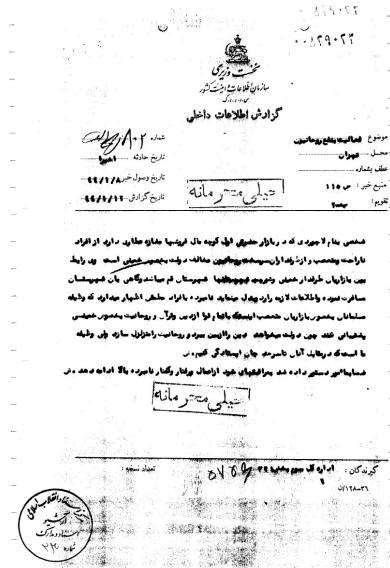 ۰۰۸۲۹۰۲۳
نخست وزیری
سازمان اطلاعات و امنیت کشور
س.ا.و.ا.ک
گزارش اطلاعات داخلی
موضوع فعالیت بنفع روحانیون
محل تهران
عطف بشماره
منبع خبر : س ۱۱۵
تقویم :
شماره
تاریخ حادثه اخیرا
تاریخ وصول خبر
تاریخ گزارش
خیلی محرمانه
شخصی بنام لاجوردی که در بازار جعفری اول کوچه حال فروشها مغازه عطاری دارد از افراد
ناراحت ومتعصب و از طرفداران سرسخت روحانیون مخالف دولت بخصوص خمینی است وی رابط
بین بازاریان طرفدار خمینی وشریعتمداری شهرستان قم میباشد وگاهی بان شهرستان
مسافرت نموده و اطلاعات لازم رارد وبدل مینماید نامبرده بافراد اظهار میدارد که وظیفه
مسلمانان بخصوص بازاریان متعصب اینستکه از دین وقرآن و روحانیت بخصوص خمینی
پشتیبانی کنند چون دولت میخواهد دین را ازبین ببرد و روحانیت رامتزلزل سازد ولی وظیفه
ما است که درمقابل آنان تاسرحد جان ایستادگی کنیم .
ضمنا دستور داده شد بمراقبتهای خود ازاعمال ورفتار وگفتار نامبرده بالا ادامه دهد .
خیلی محرمانه
گیرندگان : اداره کل سوم بخش
تعداد نسخه :
۳۶-۱۲۸/ن
مرکز اسناد انقلاب اسلامی
آرشیو
اسناد و مدارک
شماره ۲۲